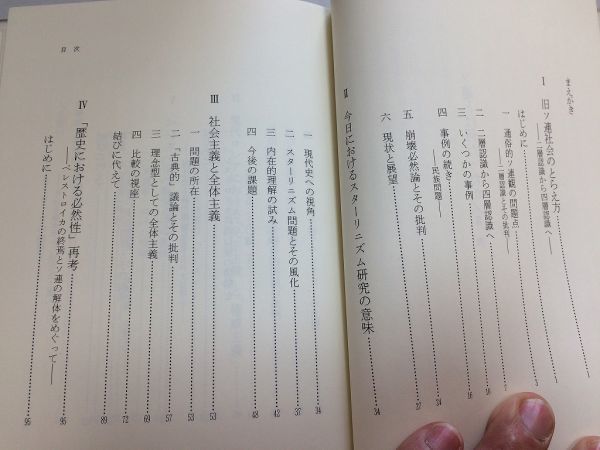 まえがき
Ⅰ 旧ソ連社会のとらえ方
――二層認識から四層認識へ―― 1
はじめに 1
一 通俗的ソ連観の問題点
――二層認識とその批判―― 3
二 二層認識から四層認識へ
三 いくつかの事例 16
四 事例の続き
――民族問題――
五 崩壊必然論とその批判 27
六 現状と展望 34
Ⅱ 今日におけるスターリニズム研究の意味 34
一 現代史への視角 34
二 スターリニズム問題とその風化 37
三 内在的理解の試み 42
四 今後の課題 48
Ⅲ 社会主義と全体主義 53
一 問題の所在 53
二 「古典的」議論とその批判 57
三 理念型としての全体主義 69
四 比較の視座 72
結びに代えて 89
Ⅳ 「歴史における必然性」再考 95
――ペレストロイカの終焉とソ連の解体をめぐって――
はじめに 95
目次